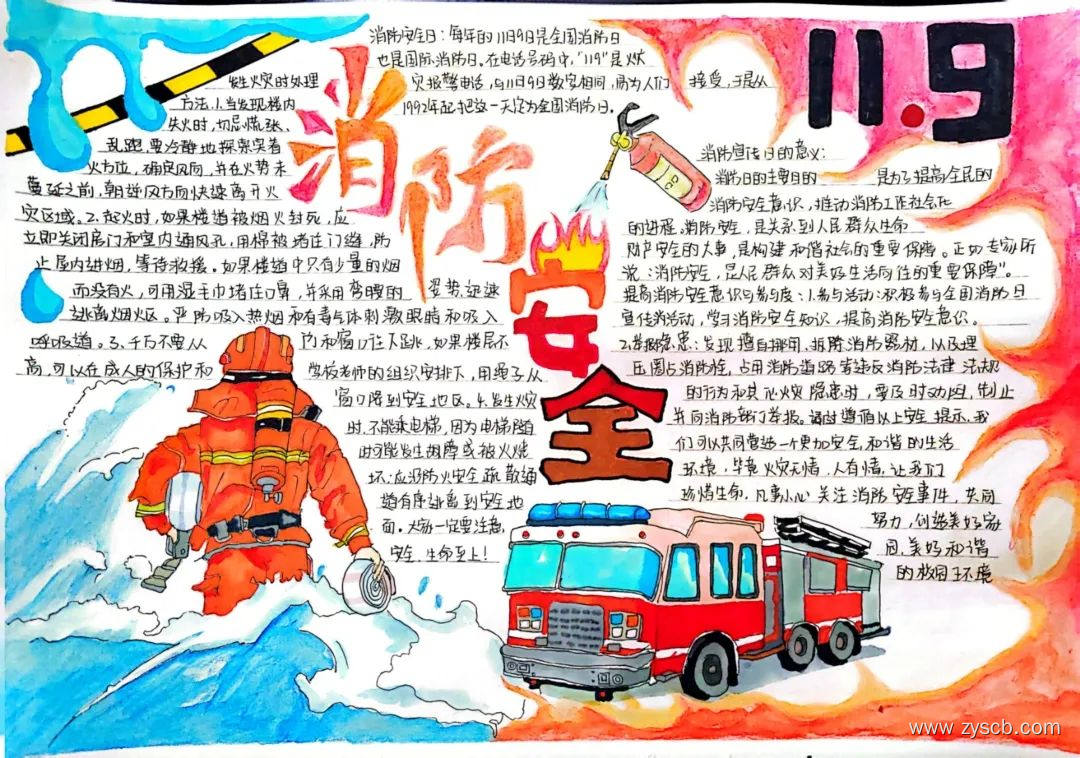 消防安全
11.9
消防安全日：每年的11月9日是全国消防日
也是国际消防日。在电话号码中，"119"是火
灾报警电话，与11月9日数字相同，而为人们 接受，于是从
1992年起，把这一天定为全国消防日。
发生火灾时处理
方法.1.当发现楼内
失火时，切忌慌张、
乱跑，要冷静地探索着
火方位，确定风向，并在火势未
蔓延之前，朝逆风方向快速离开火
灾区域。2.起火时，如果楼道被烟火封死，应
立即关闭房门和室内通风孔，用棉被堵住门缝，防
止屋内进烟，等待救援。如果楼道中只有少量的烟
而没有火，可用湿毛巾堵住口鼻，并采用弯腰的 姿势，迅速
逃离烟火区。严防吸入热烟和有毒气体刺激眼睛和吸入
呼吸道。3.千万不要从 门和窗口往下跳，如果楼层不
高，可以在成人的保护和 学校老师的组织安排下，用绳子从
窗口降到安全地区。4.发生火灾
时，不能乘电梯，因为电梯随
时可能发生故障或被火烧
坏；应沿防火安全疏散通
道有序逃离到安全地
面。大家一定要注意，
安全，生命至上！
消防宣传日的意义：
消防日的主要目的 是为了提高全民的
消防安全意识，推动消防工作社会化
的进程。消防安全，是关系到人民群众生命
财产安全的大事，是构建和谐社会的重要保障。正如专家所
说：消防安全，是人民群众对美好生活向往的重要保障"。
提高消防安全意识与参与度：1.参与活动：积极参与全国消防日
宣传消活动，学习消防安全知识，提高消防安全意识。
2.举报隐患：发现擅自挪用、拆除消防器材，以及埋
压圈占消防栓，占用消防道路等违反消防法律法规
的行为和其他火灾隐患时，要及时劝阻，制止
并向消防部门举报。通过遵循以上安全提示，我
们可以共同营造一个更加安全，和谐的生活
环境，毕竟火灾无情，人有情，让我们
珍惜生命，凡事小心，关注消防安全事件，共同
努力，创造美好家
园，美好和谐
的校园子环境
www.zyscb.com